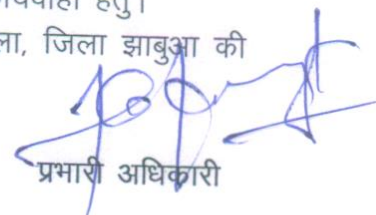 हेतु।
जिला झाबुआ की
प्रभारी अधिकारी